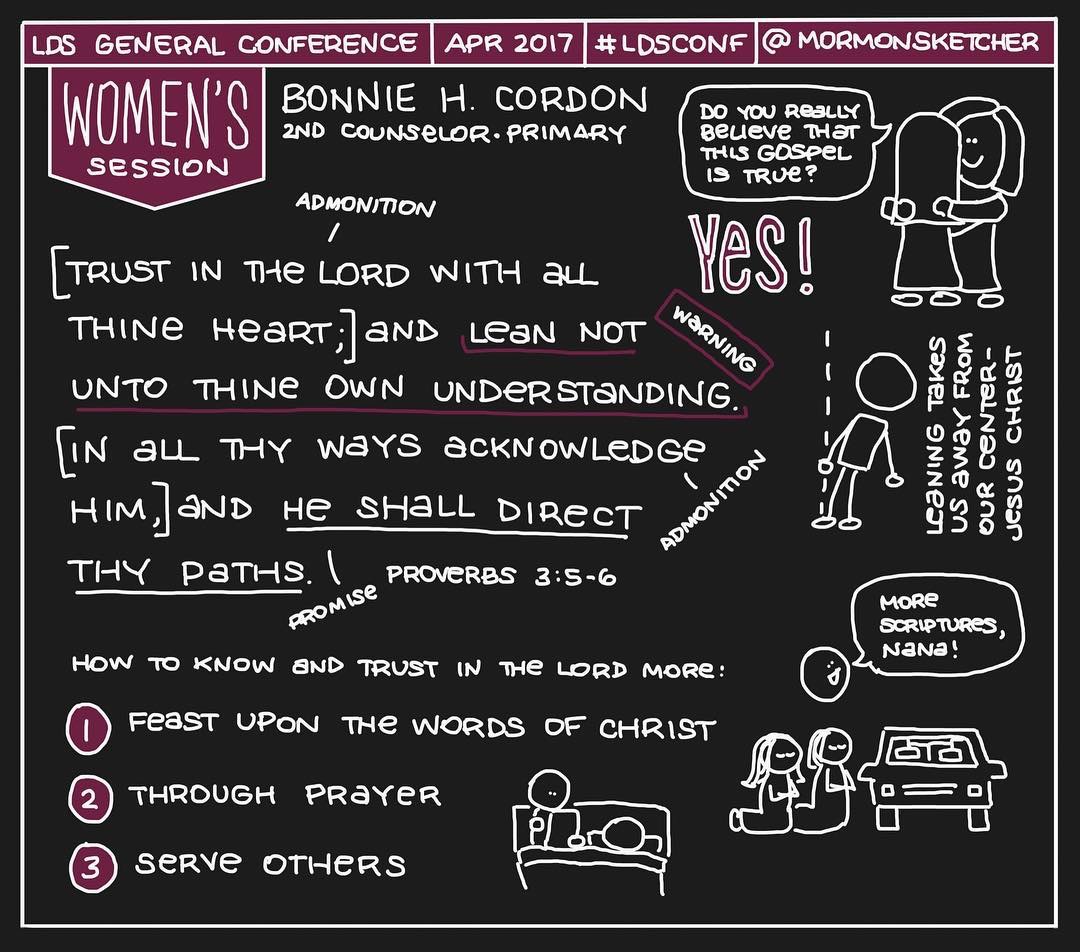 LDS GENERAL CONFERENCE APR 2017 #LDSCONF @MORMONSKETCHER
WOMEN'S
SESSION
BONNIE H. CORDON
2ND COUNSELOR · PRIMARY
DO YOU REALLY
BELIEVE THAT
THIS GOSPEL
IS TRUE?
YES!
ADMONITION
[TRUST IN THE LORD WITH ALL
THINE HEART;] AND LEAN NOT
WARNING
UNTO THINE OWN UNDERSTANDING.
[IN ALL THY WAYS ACKNOWLEDGE
HIM,] AND HE SHALL DIRECT
ADMONITION
THY PATHS.
PROMISE
PROVERBS 3:5-6
LEANING TAKES
US AWAY FROM
OUR CENTER-
JESUS CHRIST
MORE
SCRIPTURES,
NANA!
HOW TO KNOW AND TRUST IN THE LORD MORE:
1 FEAST UPON THE WORDS OF CHRIST
2 THROUGH PRAYER
3 SERVE OTHERS